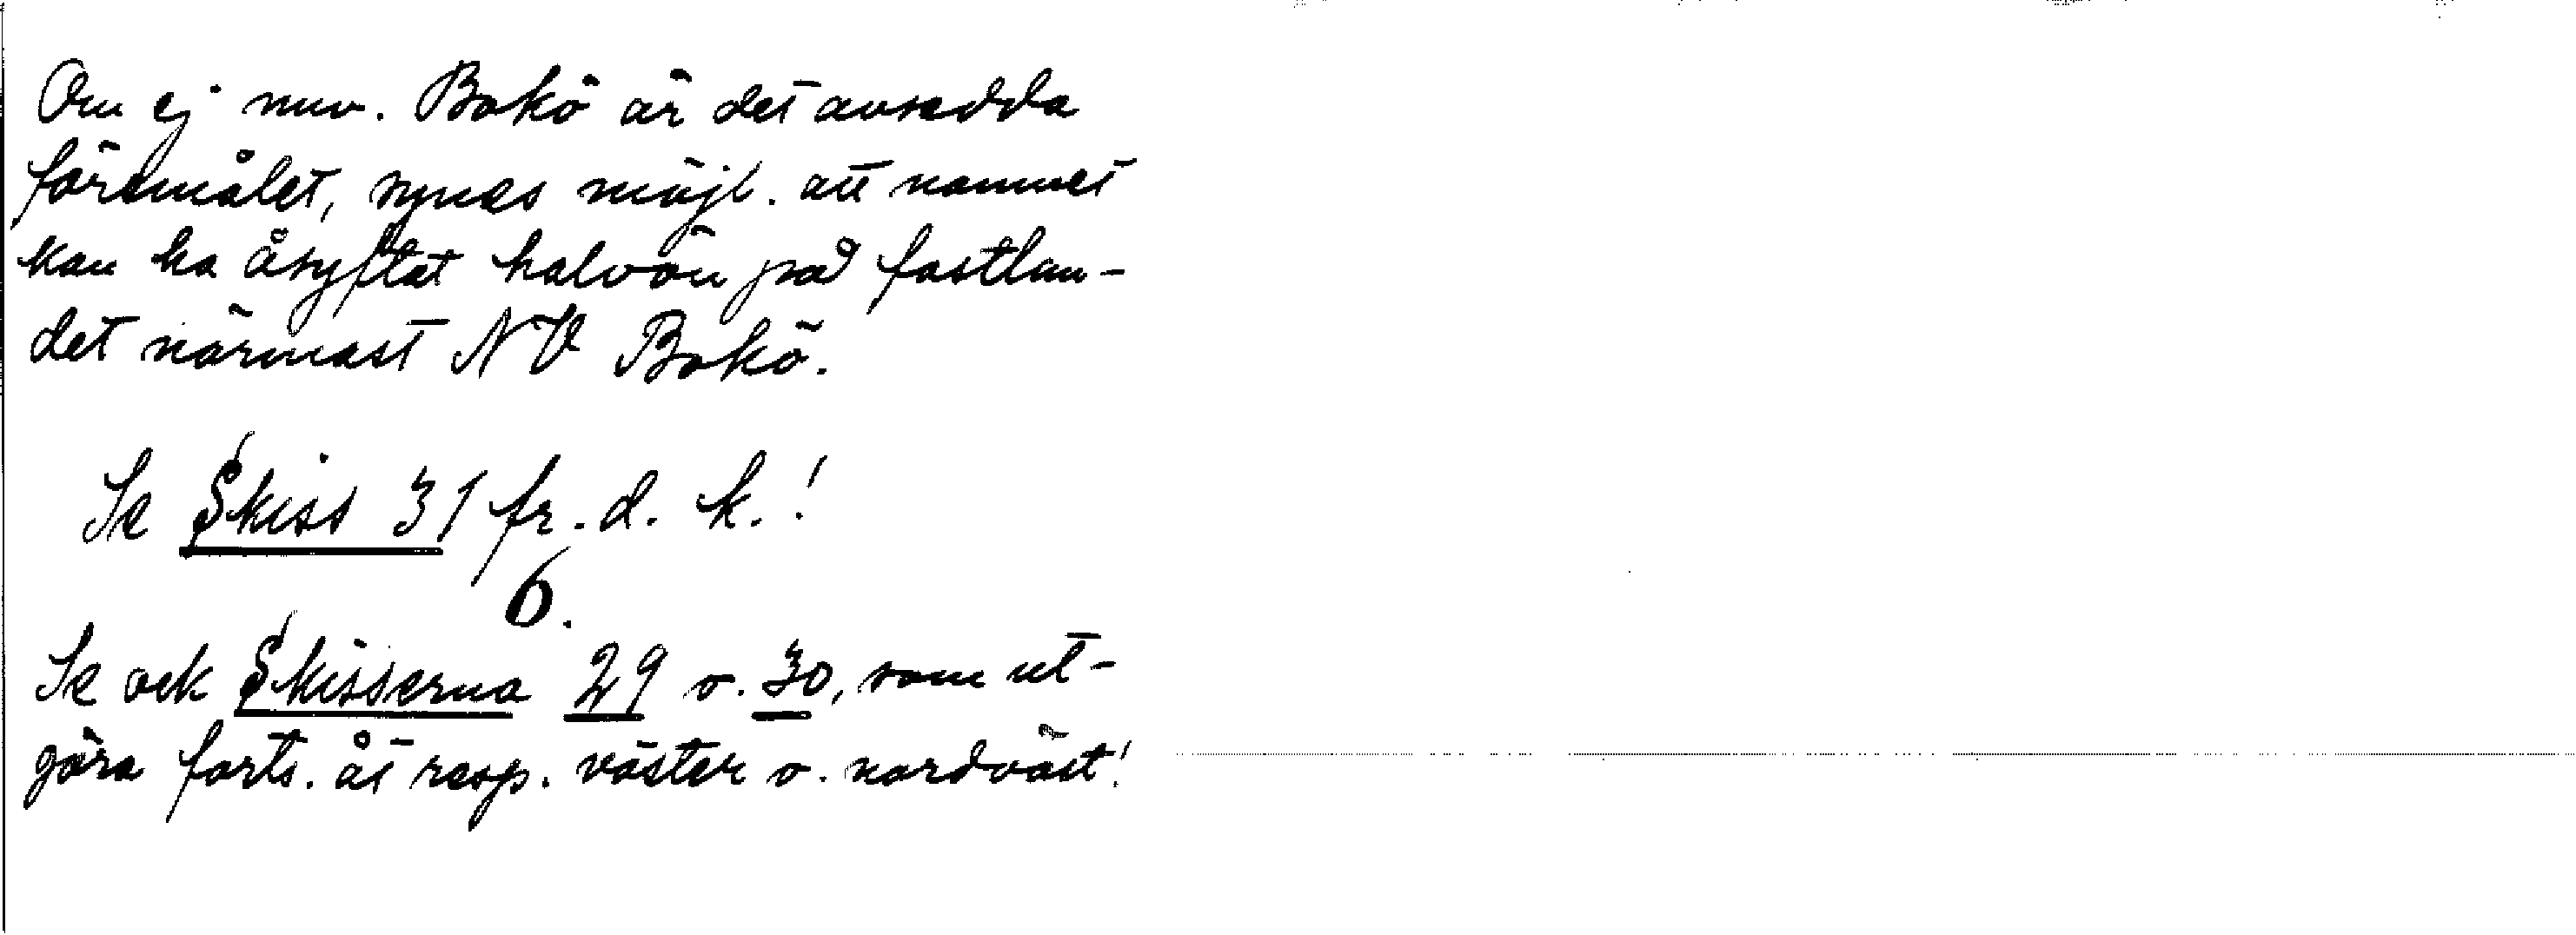 Om ej nuv. Bokö är det avsedda
föremålet, synes möjl. att namnet
kan ha åsyftat halvön på fastlan-
det närmast NV Bokö.
Se Skiss 31 fr. d. k.!
6.
Se ock Skisserna 29 o. 30, som ut-
göra forts. åt resp. väster o. nordväst!